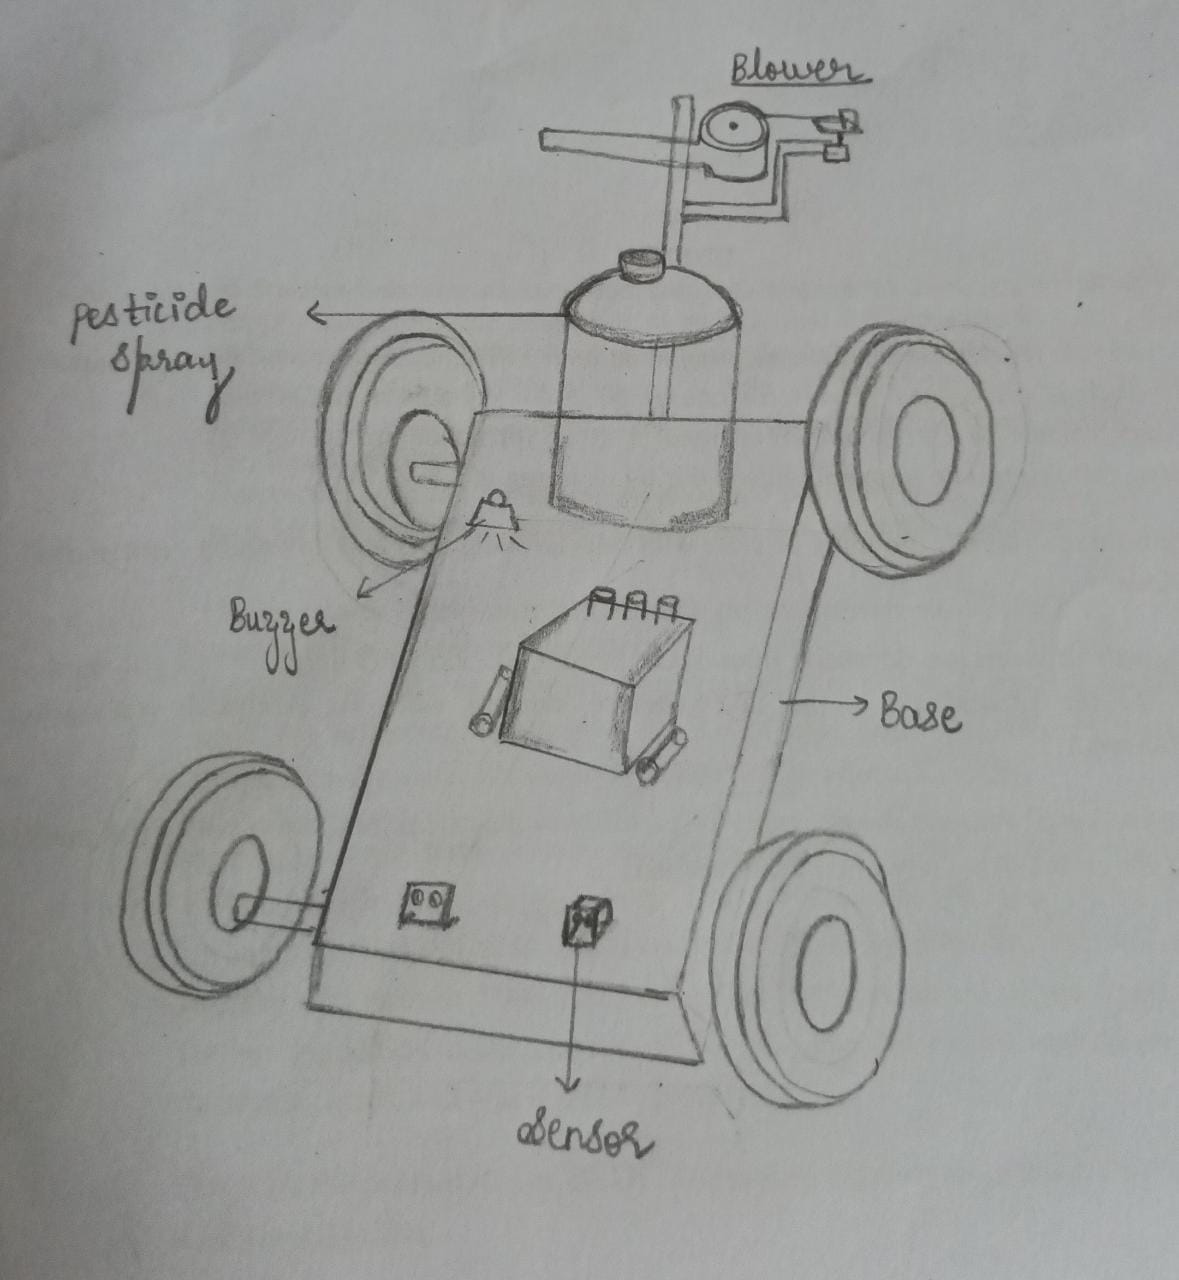 Blower
pesticide
spray
Buzzer
Base
sensor